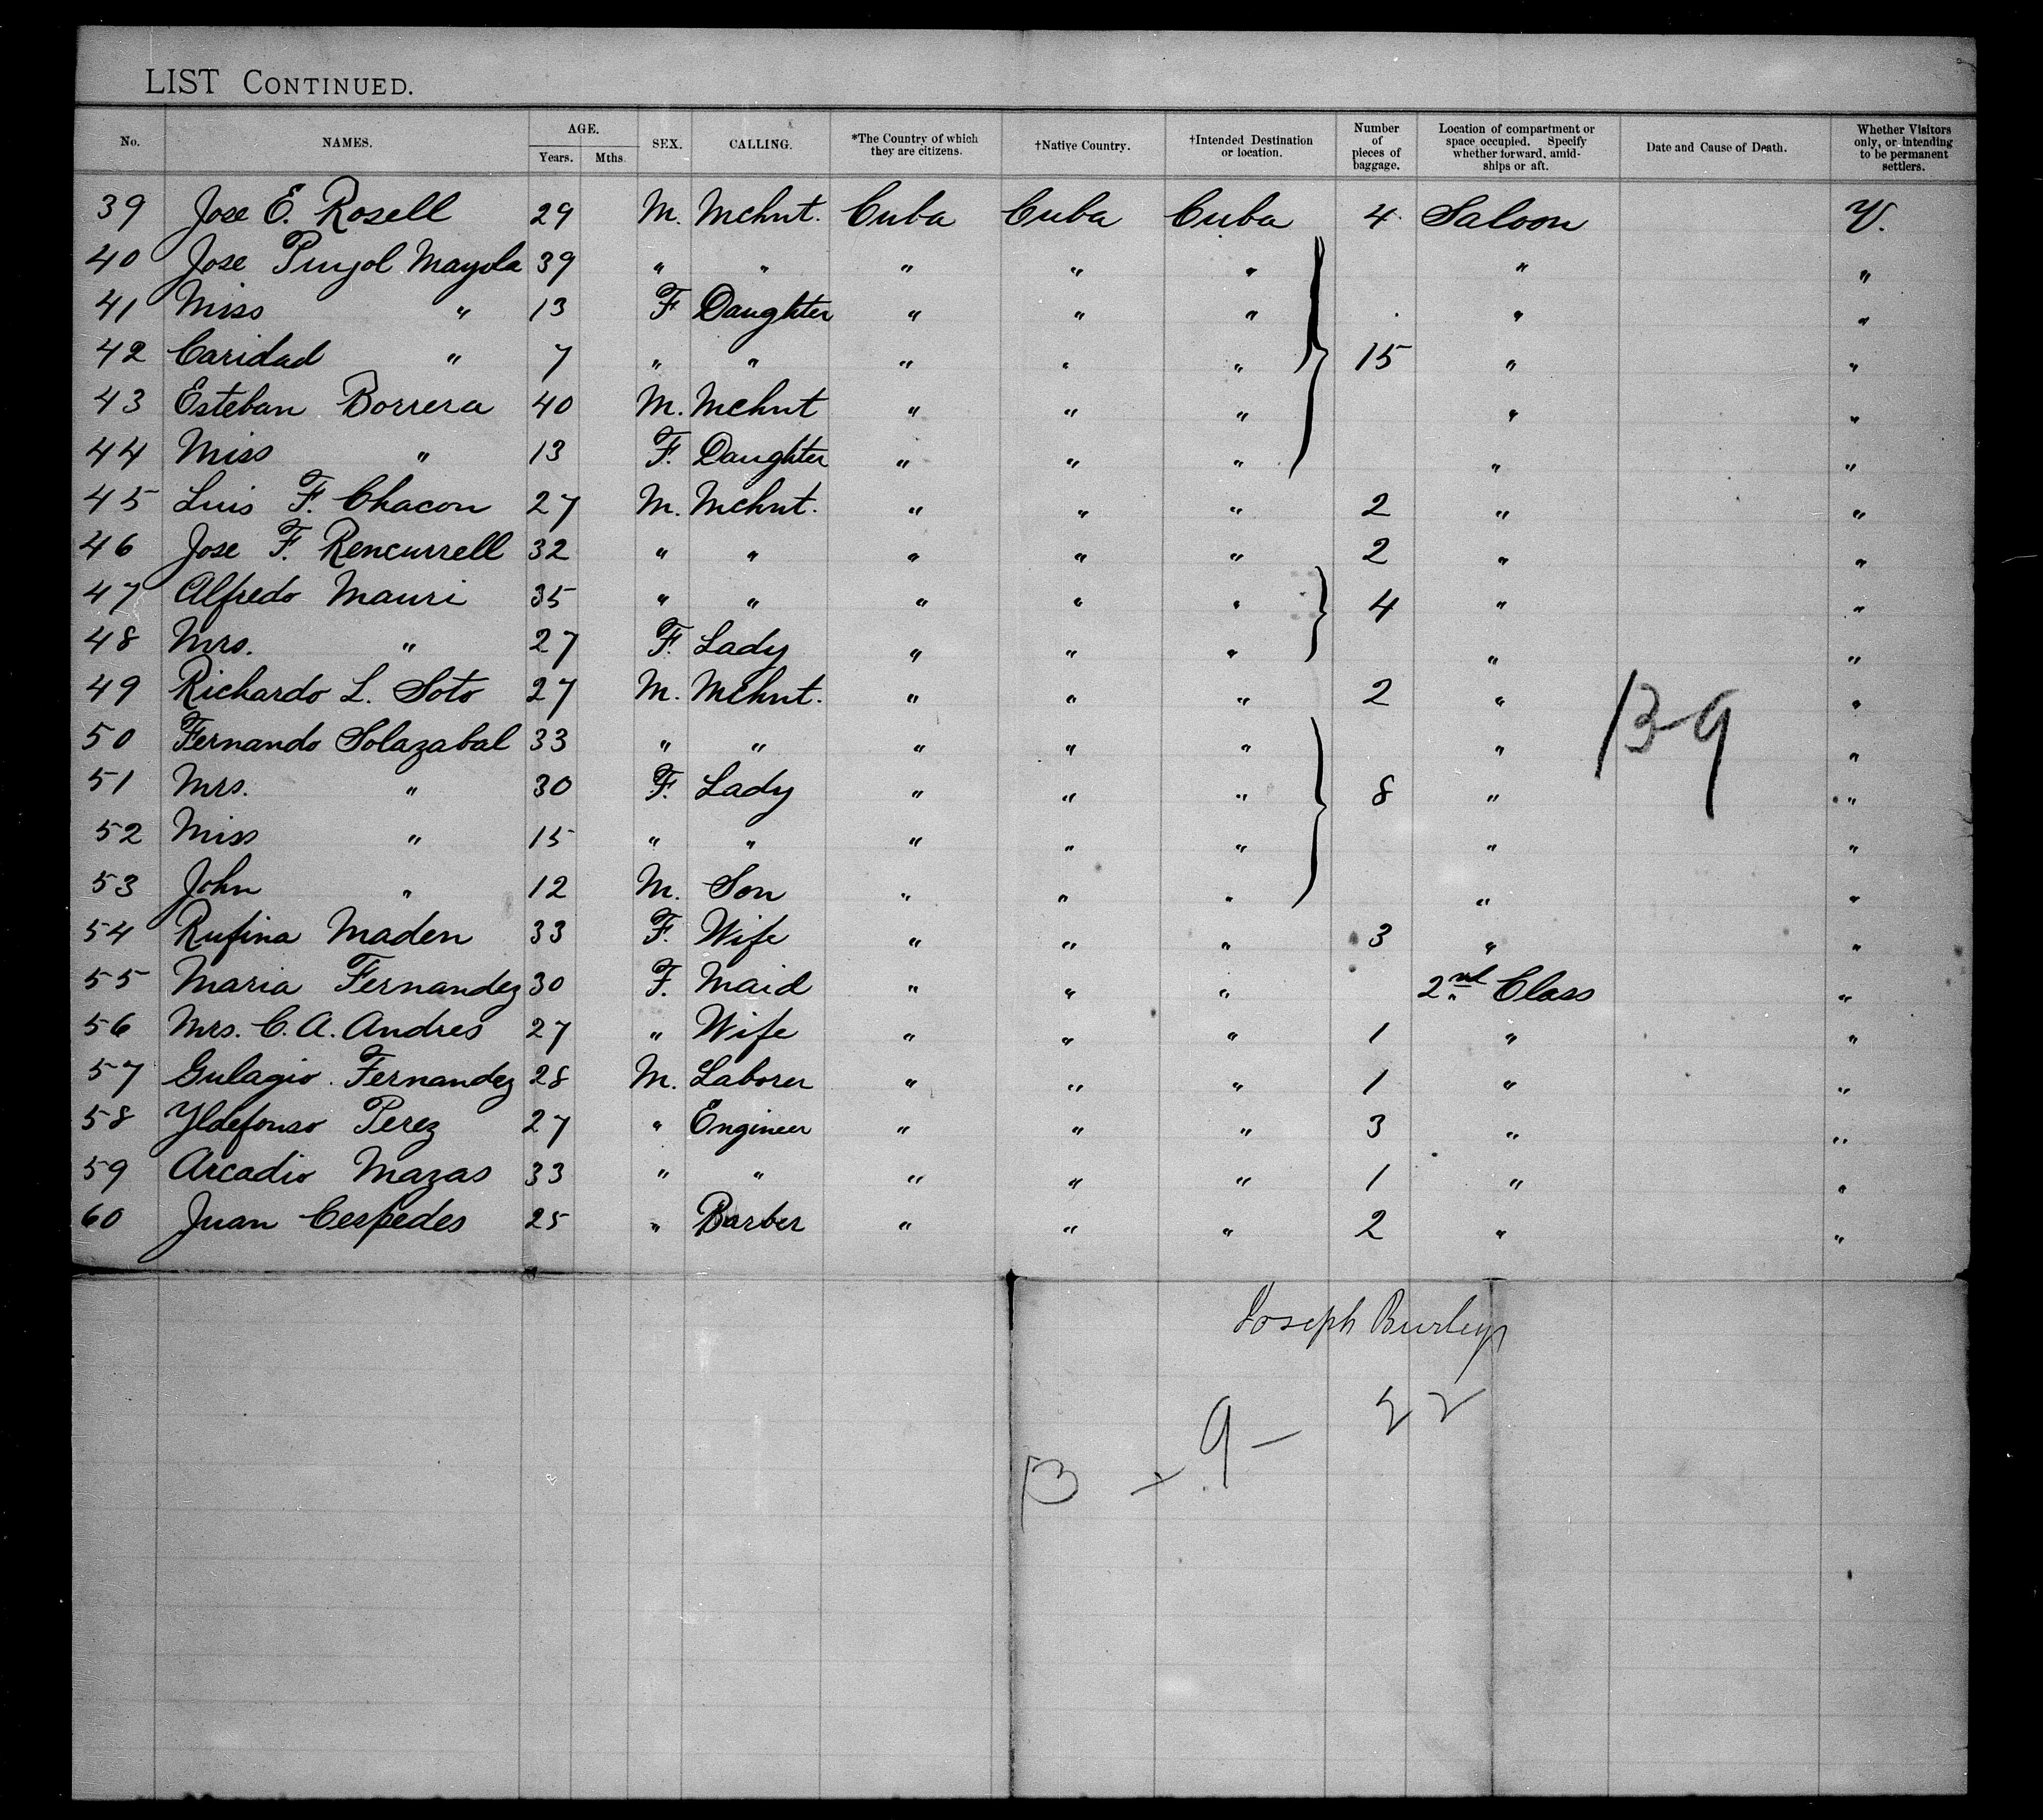 LIST CONTINUED.
No. NAMES. AGE. Years. Mths. SEX. CALLING. *The Country of which they are citizens. †Native Country. †Intended Destination or location. Number of pieces of baggage. Location of compartment or space occupied. Specify whether forward, amidships or aft. Date and Cause of Death. Whether Visitors only, or intending to be permanent settlers.
39 Jose E. Rosell 29 M. Mchnt. Cuba Cuba Cuba 4 Saloon V.
40 Jose Pujol Mayola 39 " " " " " " "
41 Miss " 13 F Daughter " " " " "
42 Caridad " 7 " " " " " 15 " "
43 Esteban Borrera 40 M. Mchnt " " " " "
44 Miss " 13 F. Daughter " " " " "
45 Luis F. Chacon 27 M. Mchnt. " " " 2 " "
46 Jose F. Rencurrell 32 " " " " " 2 " "
47 Alfredo Mauri 35 " " " " " 4 " "
48 Mrs. " 27 F. Lady " " " " "
49 Richardo L. Soto 27 M. Mchnt. " " " 2 " "
50 Fernando Solazabal 33 " " " " " " "
51 Mrs. " 30 F. Lady " " " 8 " "
52 Miss " 15 " " " " " " "
53 John " 12 M. Son " " " " "
54 Rufina Maden 33 F. Wife " " " 3 " "
55 Maria Fernandez 30 F. Maid " " " 2nd Class "
56 Mrs. C. A. Andres 27 " Wife " " " 1 " "
57 Gulagio Fernandez 28 M. Laborer " " " 1 " "
58 Yldefonso Perez 27 " Engineer " " " 3 " "
59 Arcadio Mazas 33 " " " " " 1 " "
60 Juan Cespedes 25 " Barber " " " 2 " "
Joseph Burley
22
9 -